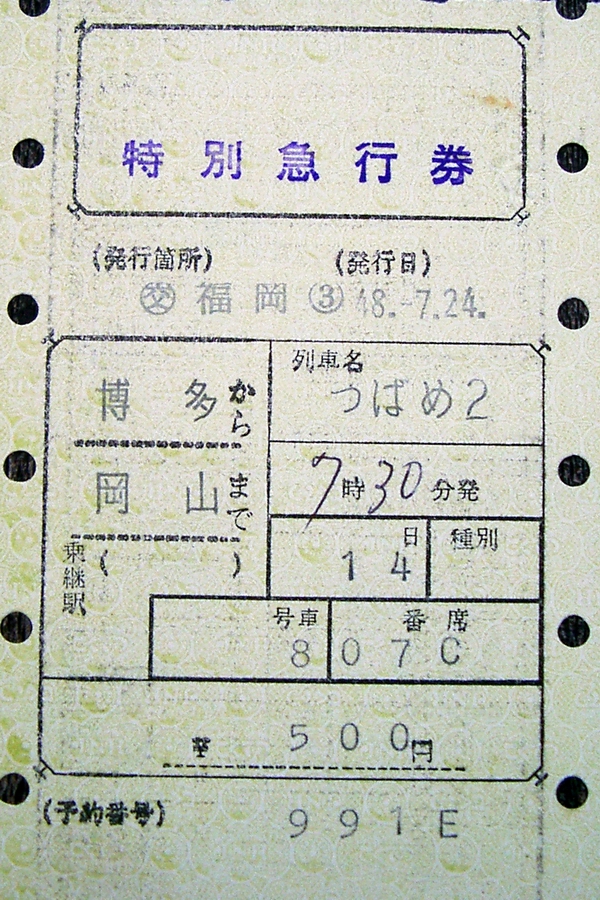 特別急行券
(発行箇所) (発行日)
㊋福岡③ 48.-7.24.
列車名
博多から つばめ2
岡山まで 7時30分発
乗継駅 ( ) 14日 種別
号車 番席
8 07C
500円
(予約番号) 991E